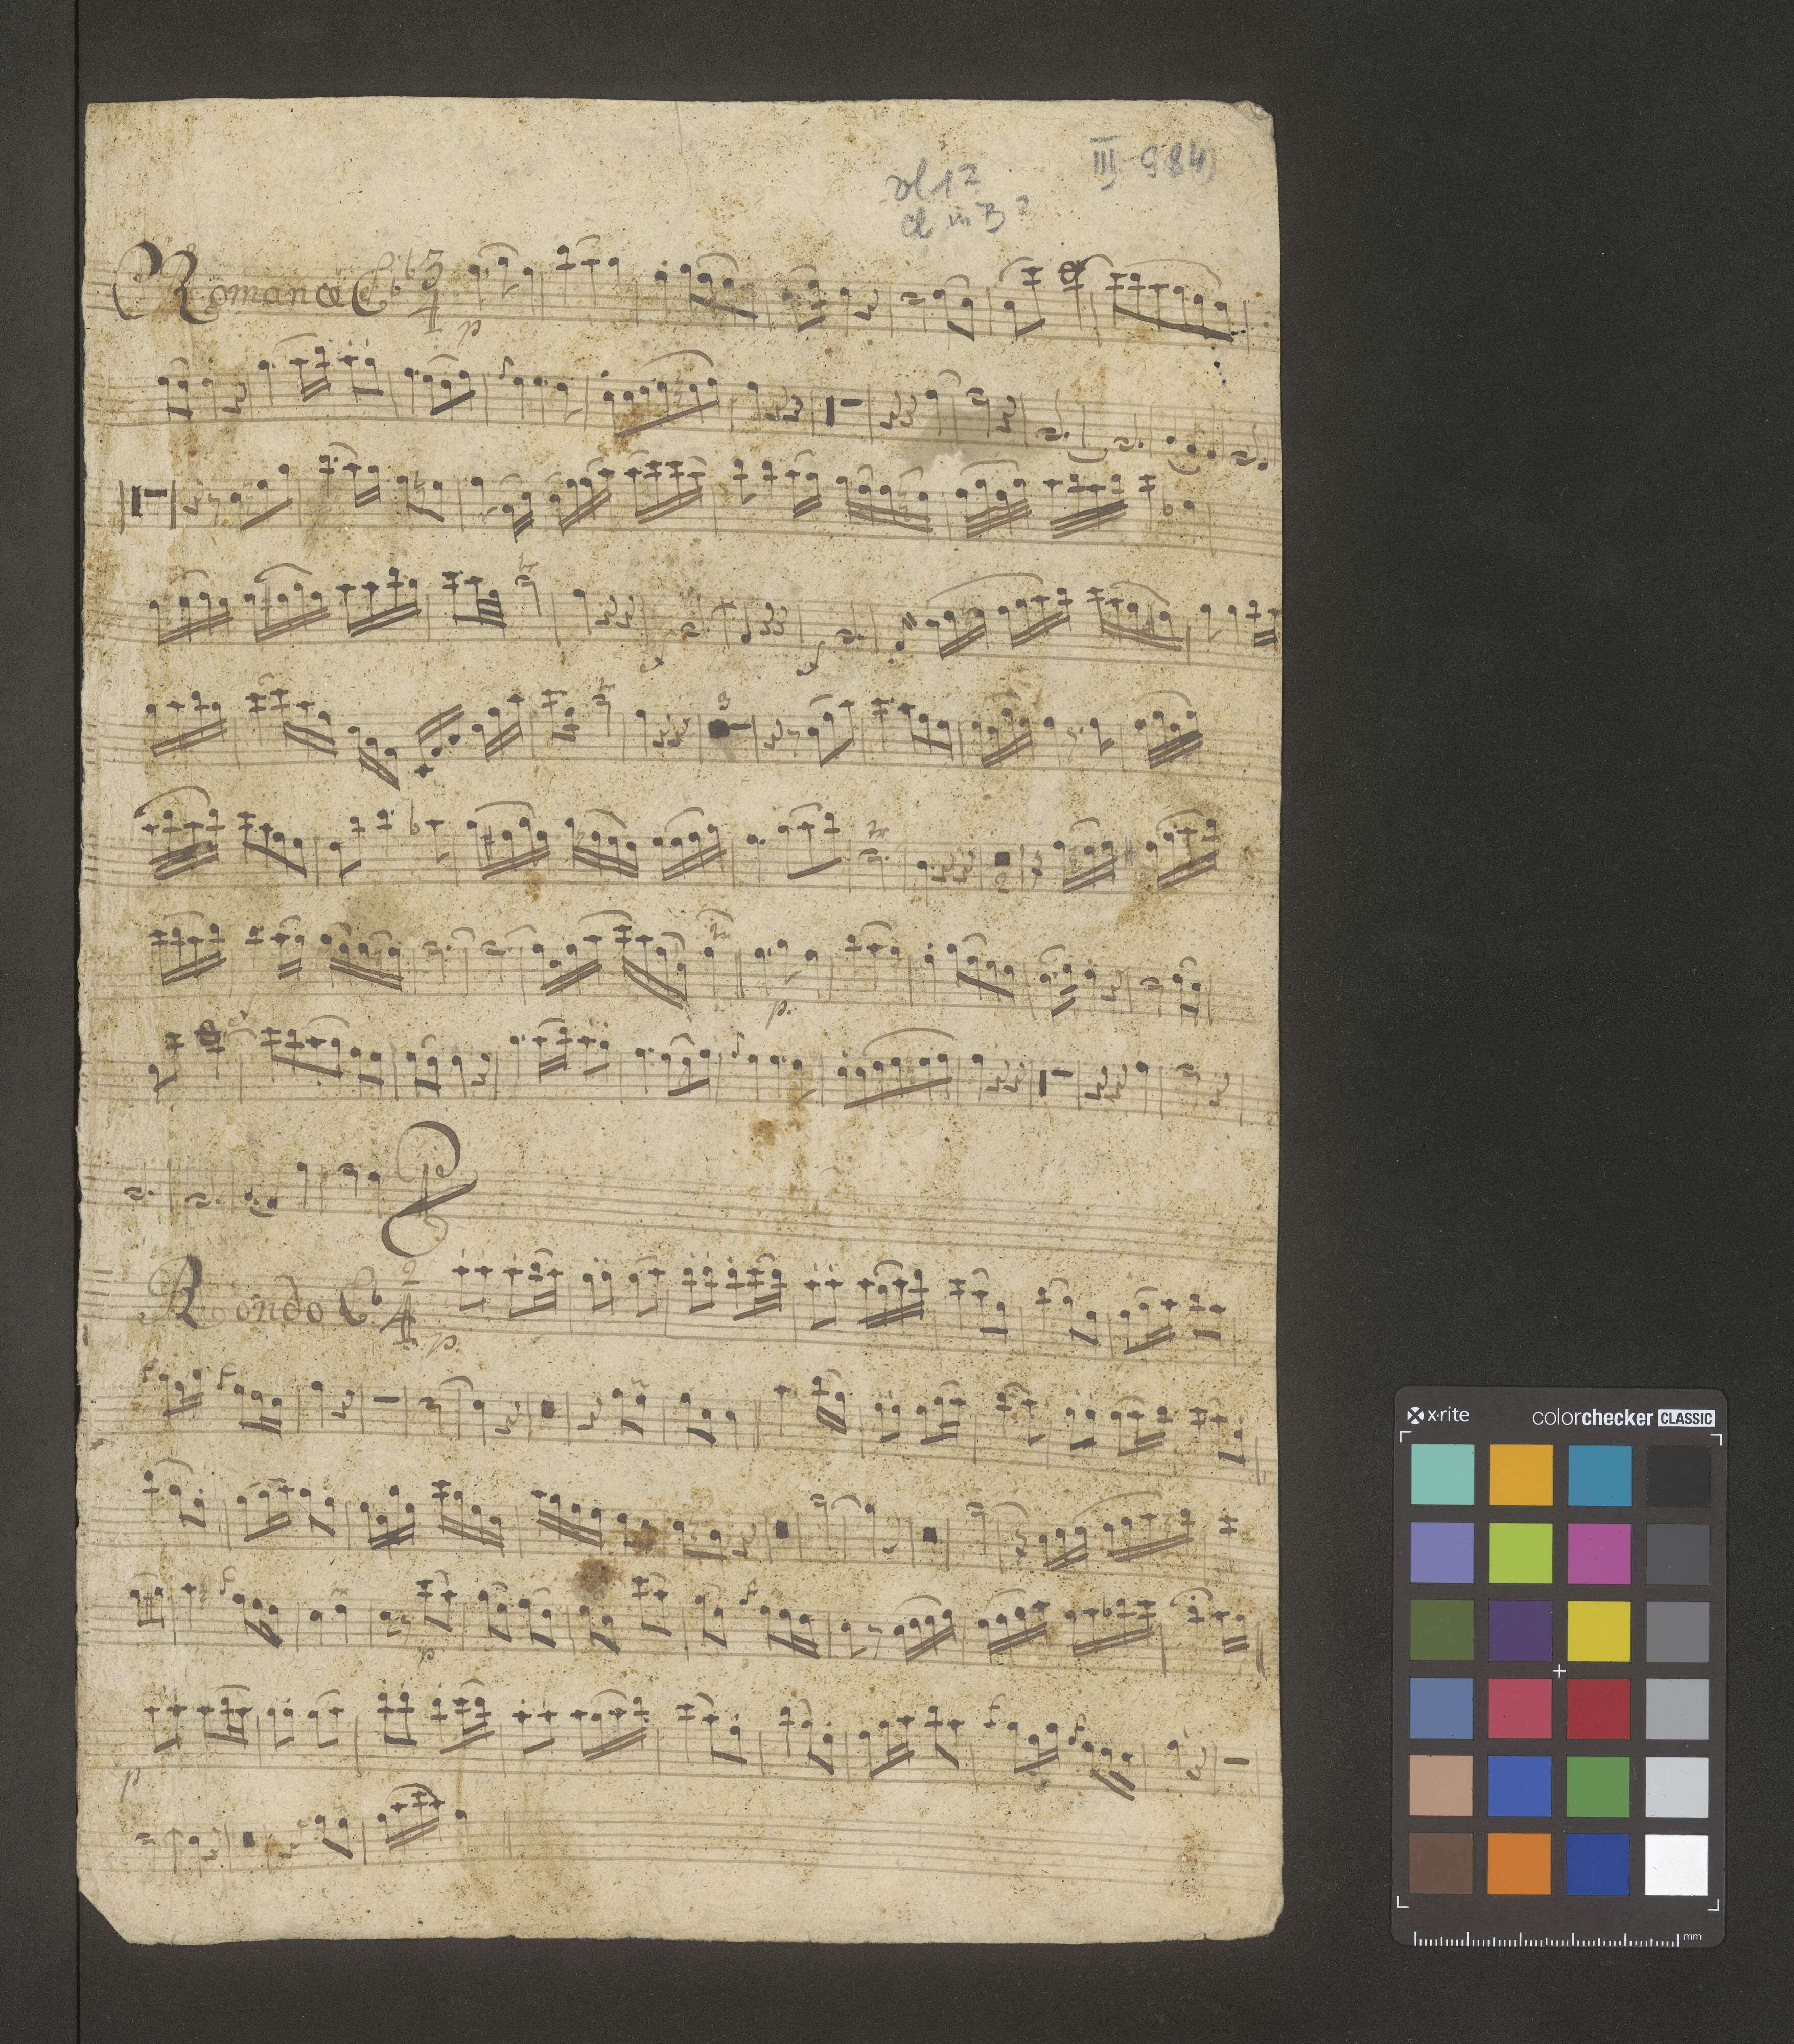 III-984
vl 1?
cl in B?
Romance 3/4
p
tr
3
tr
tr
2
tr
p.
Rondo 2/4
p.
p
p
x·rite colorchecker CLASSIC
mm